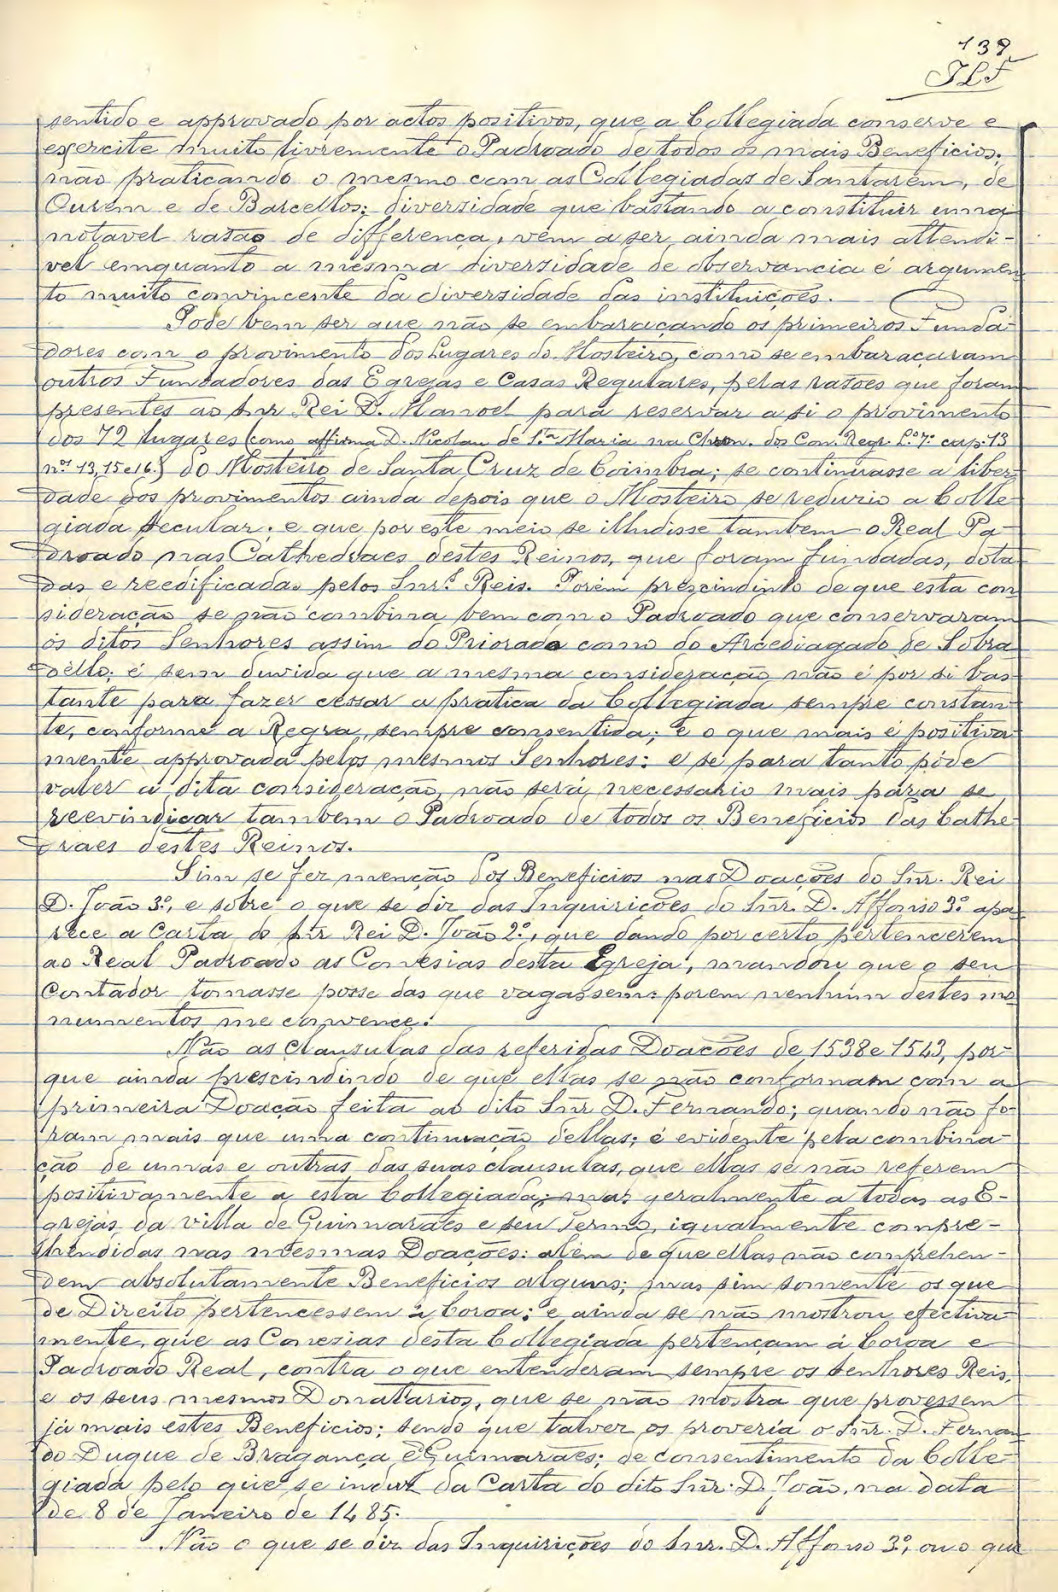 139
JLF
sentido e approvado por actos positivos, que a Collegiada conserve e
exercite muito livremente o Padroado de todos os mais Beneficios;
não praticando o mesmo com as Collegiadas de Santarem, de
Ourem e de Barcellos; diversidade que bastando a constituir uma
notavel rasão de differença, vem a ser ainda mais attendi-
vel emquanto a mesma diversidade de observancia é argumen
to muito convincente da diversidade das instituições.
Pode bem ser que não se embaraçando os primeiros Funda-
dores com o provimento dos Lugares do Mosteiro, como se embaraçaram
outros Fundadores das Egrejas e Casas Regulares, pelas rasões que foram
presentes ao Snr Rei D. Manoel para reservar a si o provimento
dos 72 lugares (como affirma D. Nicolau de S.ta Maria na Chron. dos Con. Regr. L.º 7.º cap. 13
n.os 13, 15 e 16.) do Mosteiro de Santa Cruz de Coimbra; se continuasse a liber-
dade dos provimentos ainda depois que o Mosteiro se reduzio a Colle-
giada Secular; e que por este meio se illudisse tambem o Real Pa-
droado nas Cathedraes destes Reinos, que foram fundadas, dota
das e reedificadas pelos Snr.s Reis. Porém prescindindo de que esta con
sideração se não combina bem com o Padroado que conservaram
os ditos Senhores assim do Priorado como do Arcediagado de Sobra
dello; é sem duvida que a mesma consideração não é por si bas-
tante para fazer cessar a pratica da Collegiada sempre constan-
te, conforme a Regra, sempre consentida; e o que mais é positiva
mente approvada pelos mesmos Senhores: e se para tanto póde
valer a dita consideração, não será necessario mais para se
reevindicar tambem o Padroado de todos os Beneficios das Cathe-
draes destes Reinos.
Sim se fez menção dos Beneficios nas Doações do Snr. Rei
D. João 3.º, e sobre o que se diz das Inquirições do Snr. D. Affonso 3.º apa
rece a Carta do Snr Rei D. João 2.º, que dando por certo pertencerem
ao Real Padroado as Conesias desta Egreja, mandou que o seu
Contador tomasse posse das que vagassem: porem nenhum destes mo
numentos me convence.
Não as clausulas das referidas Doacões de 1538 e 1543, por-
que ainda prescindindo de que ellas se não conformam com a
primeira Doação feita ao dito Snr D. Fernando; quando não fo-
ram mais que uma continuação dellas; é evidente pela combina-
ção de umas e outras das suas clausulas, que ellas se não referem
positivamente a esta Collegiada, mas geralmente a todas as E-
grejas da villa de Guimarães e seu Termo, igualmente compre-
hendidas nas mesmas Doações: alem de que ellas não comprehen-
dem absolutamente Beneficios alguns; mas sim somente os que
de Direito pertencessem á Coroa; e ainda se não mostrou effectiva
mente, que as Conesias desta Collegiada pertençam á Coroa e
Padroado Real, contra o que entenderam sempre os Senhores Reis,
e os seus mesmos Donatarios, que se não mostra que provessem
já mais estes Beneficios; sendo que talvez os proveria o Snr. D. Fernan
do Duque de Bragança e Guimarães; de consentimento da Colle-
giada pelo que se induz da Carta do dito Snr. D. João, na data
de 8 de Janeiro de 1485.
Não o que se diz das Inquirições do Snr. D. Affonso 3.º, ou o que